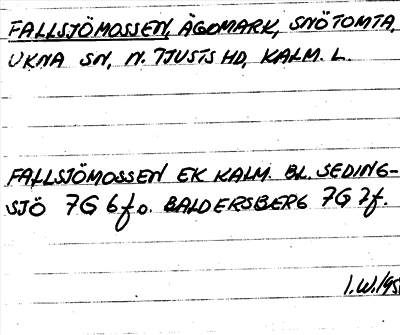 FALLSJÖMOSSEN, ÄGOMARK, SNÖTOMTA,
UKNA SN, N. TJUSTS HD, KALM. L.
FALLSJÖMOSSEN EK KALM. BL. SEDING-
SJÖ 7G 6f o. BALDERSBERG 7G 7f.
I.W. 195